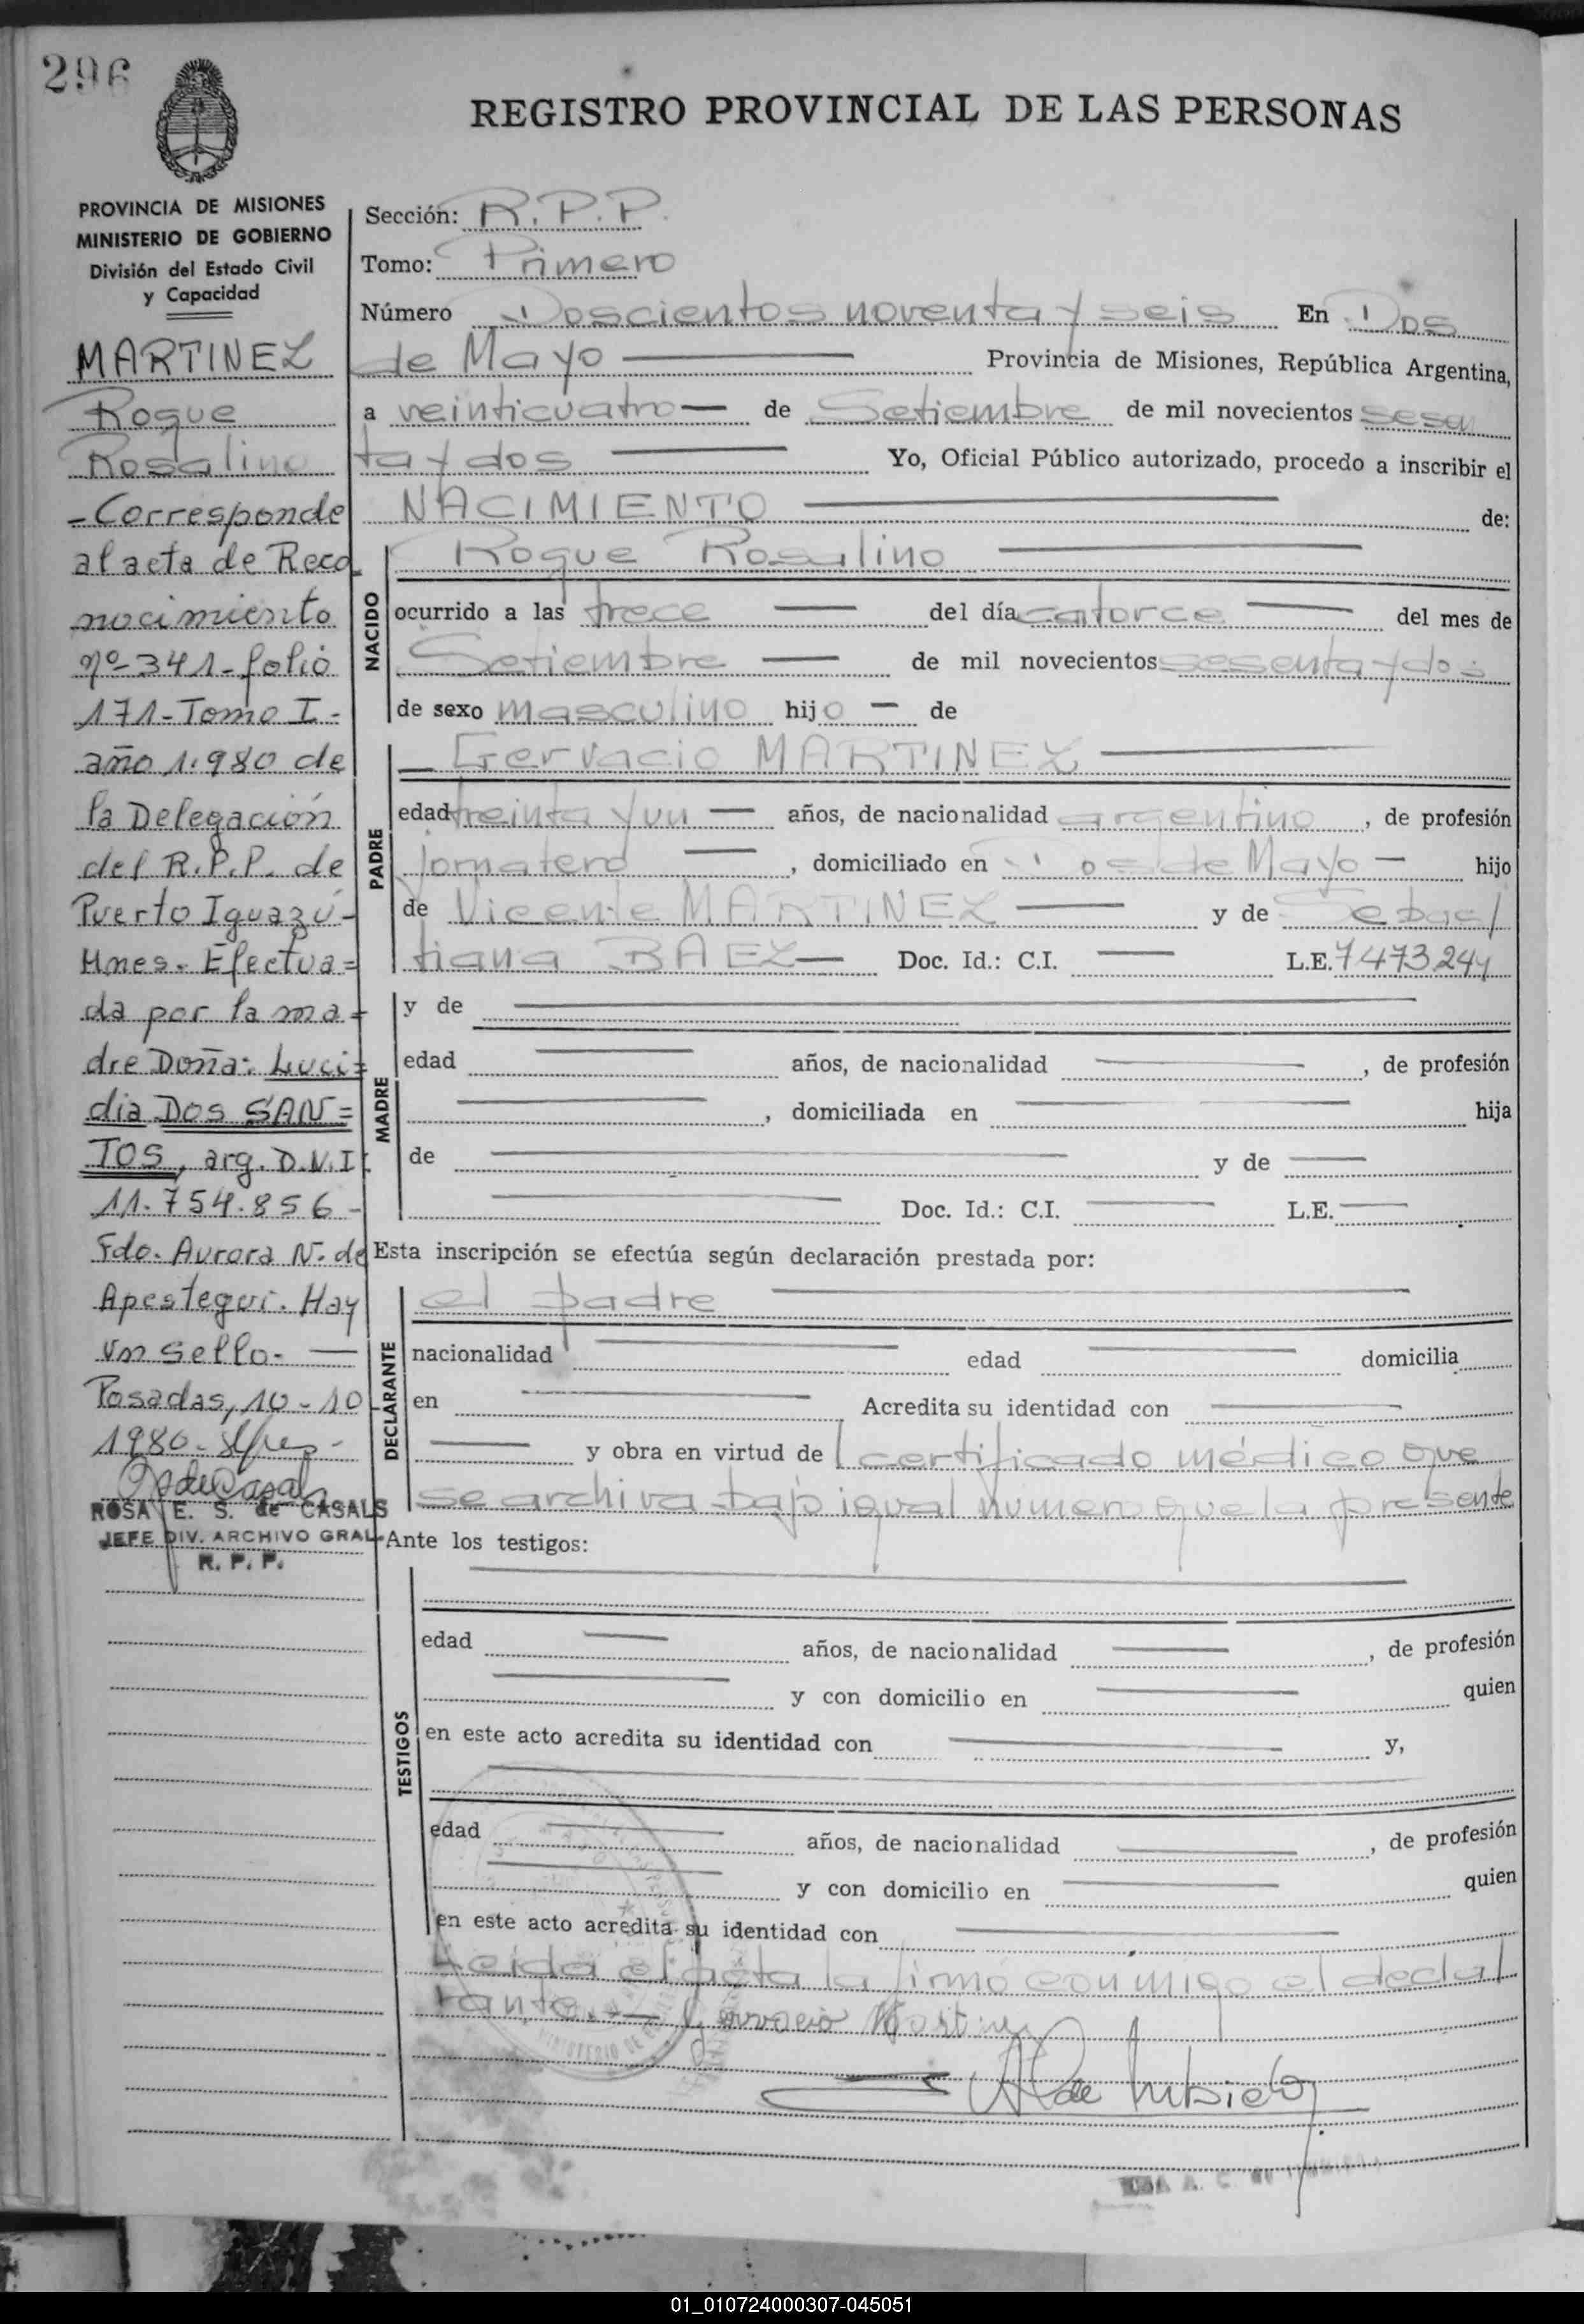 296
REGISTRO PROVINCIAL DE LAS PERSONAS
PROVINCIA DE MISIONES
MINISTERIO DE GOBIERNO
División del Estado Civil
y Capacidad
MARTINEZ
Roque
Rosalino
-Corresponde
al acta de Reco
nocimiento
Nº-341-folio
171-Tomo I-
año 1.980 de
la Delegación
del R.P.P. de
Puerto Iguazú-
Mnes. Efectua=
da por la ma=
dre Doña: Luci=
dia DOS SAN=
TOS, arg. D.N.I.
11.754.856-
Fdo. Aurora N. de
Apestegui. Hay
un sello.
Posadas, 10-10
1980.
ROSA E. S. de CASALS
JEFE DIV. ARCHIVO GRAL.
R. P. P.
Sección: R.P.P.
Tomo: Primero
Número Doscientos noventa y seis En Dos
de Mayo Provincia de Misiones, República Argentina,
a veinticuatro de Setiembre de mil novecientos sesen
ta y dos Yo, Oficial Público autorizado, procedo a inscribir el
NACIMIENTO de:
NACIDO
Roque Rosalino
ocurrido a las trece del día catorce del mes de
Setiembre de mil novecientos sesenta y dos
de sexo masculino hijo de
PADRE
Gervacio MARTINEZ
edad treinta y un años, de nacionalidad argentino, de profesión
jornalero, domiciliado en Dos de Mayo hijo
de Vicente MARTINEZ y de Sebas/
tiana BAEZ Doc. Id.: C.I. L.E. 7473244
MADRE
y de
edad años, de nacionalidad , de profesión
, domiciliada en hija
de y de
Doc. Id.: C.I. L.E.
Esta inscripción se efectúa según declaración prestada por:
DECLARANTE
el padre
nacionalidad edad domicilia
en Acredita su identidad con
y obra en virtud de l certificado médico que
se archiva bajo igual número que la presente
Ante los testigos:
TESTIGOS
edad años, de nacionalidad , de profesión
y con domicilio en quien
en este acto acredita su identidad con y,
edad años, de nacionalidad , de profesión
y con domicilio en quien
en este acto acredita su identidad con
Leida el acta la firmó conmigo el decla/
rante. Gervacio Martinez
01_010724000307-045051